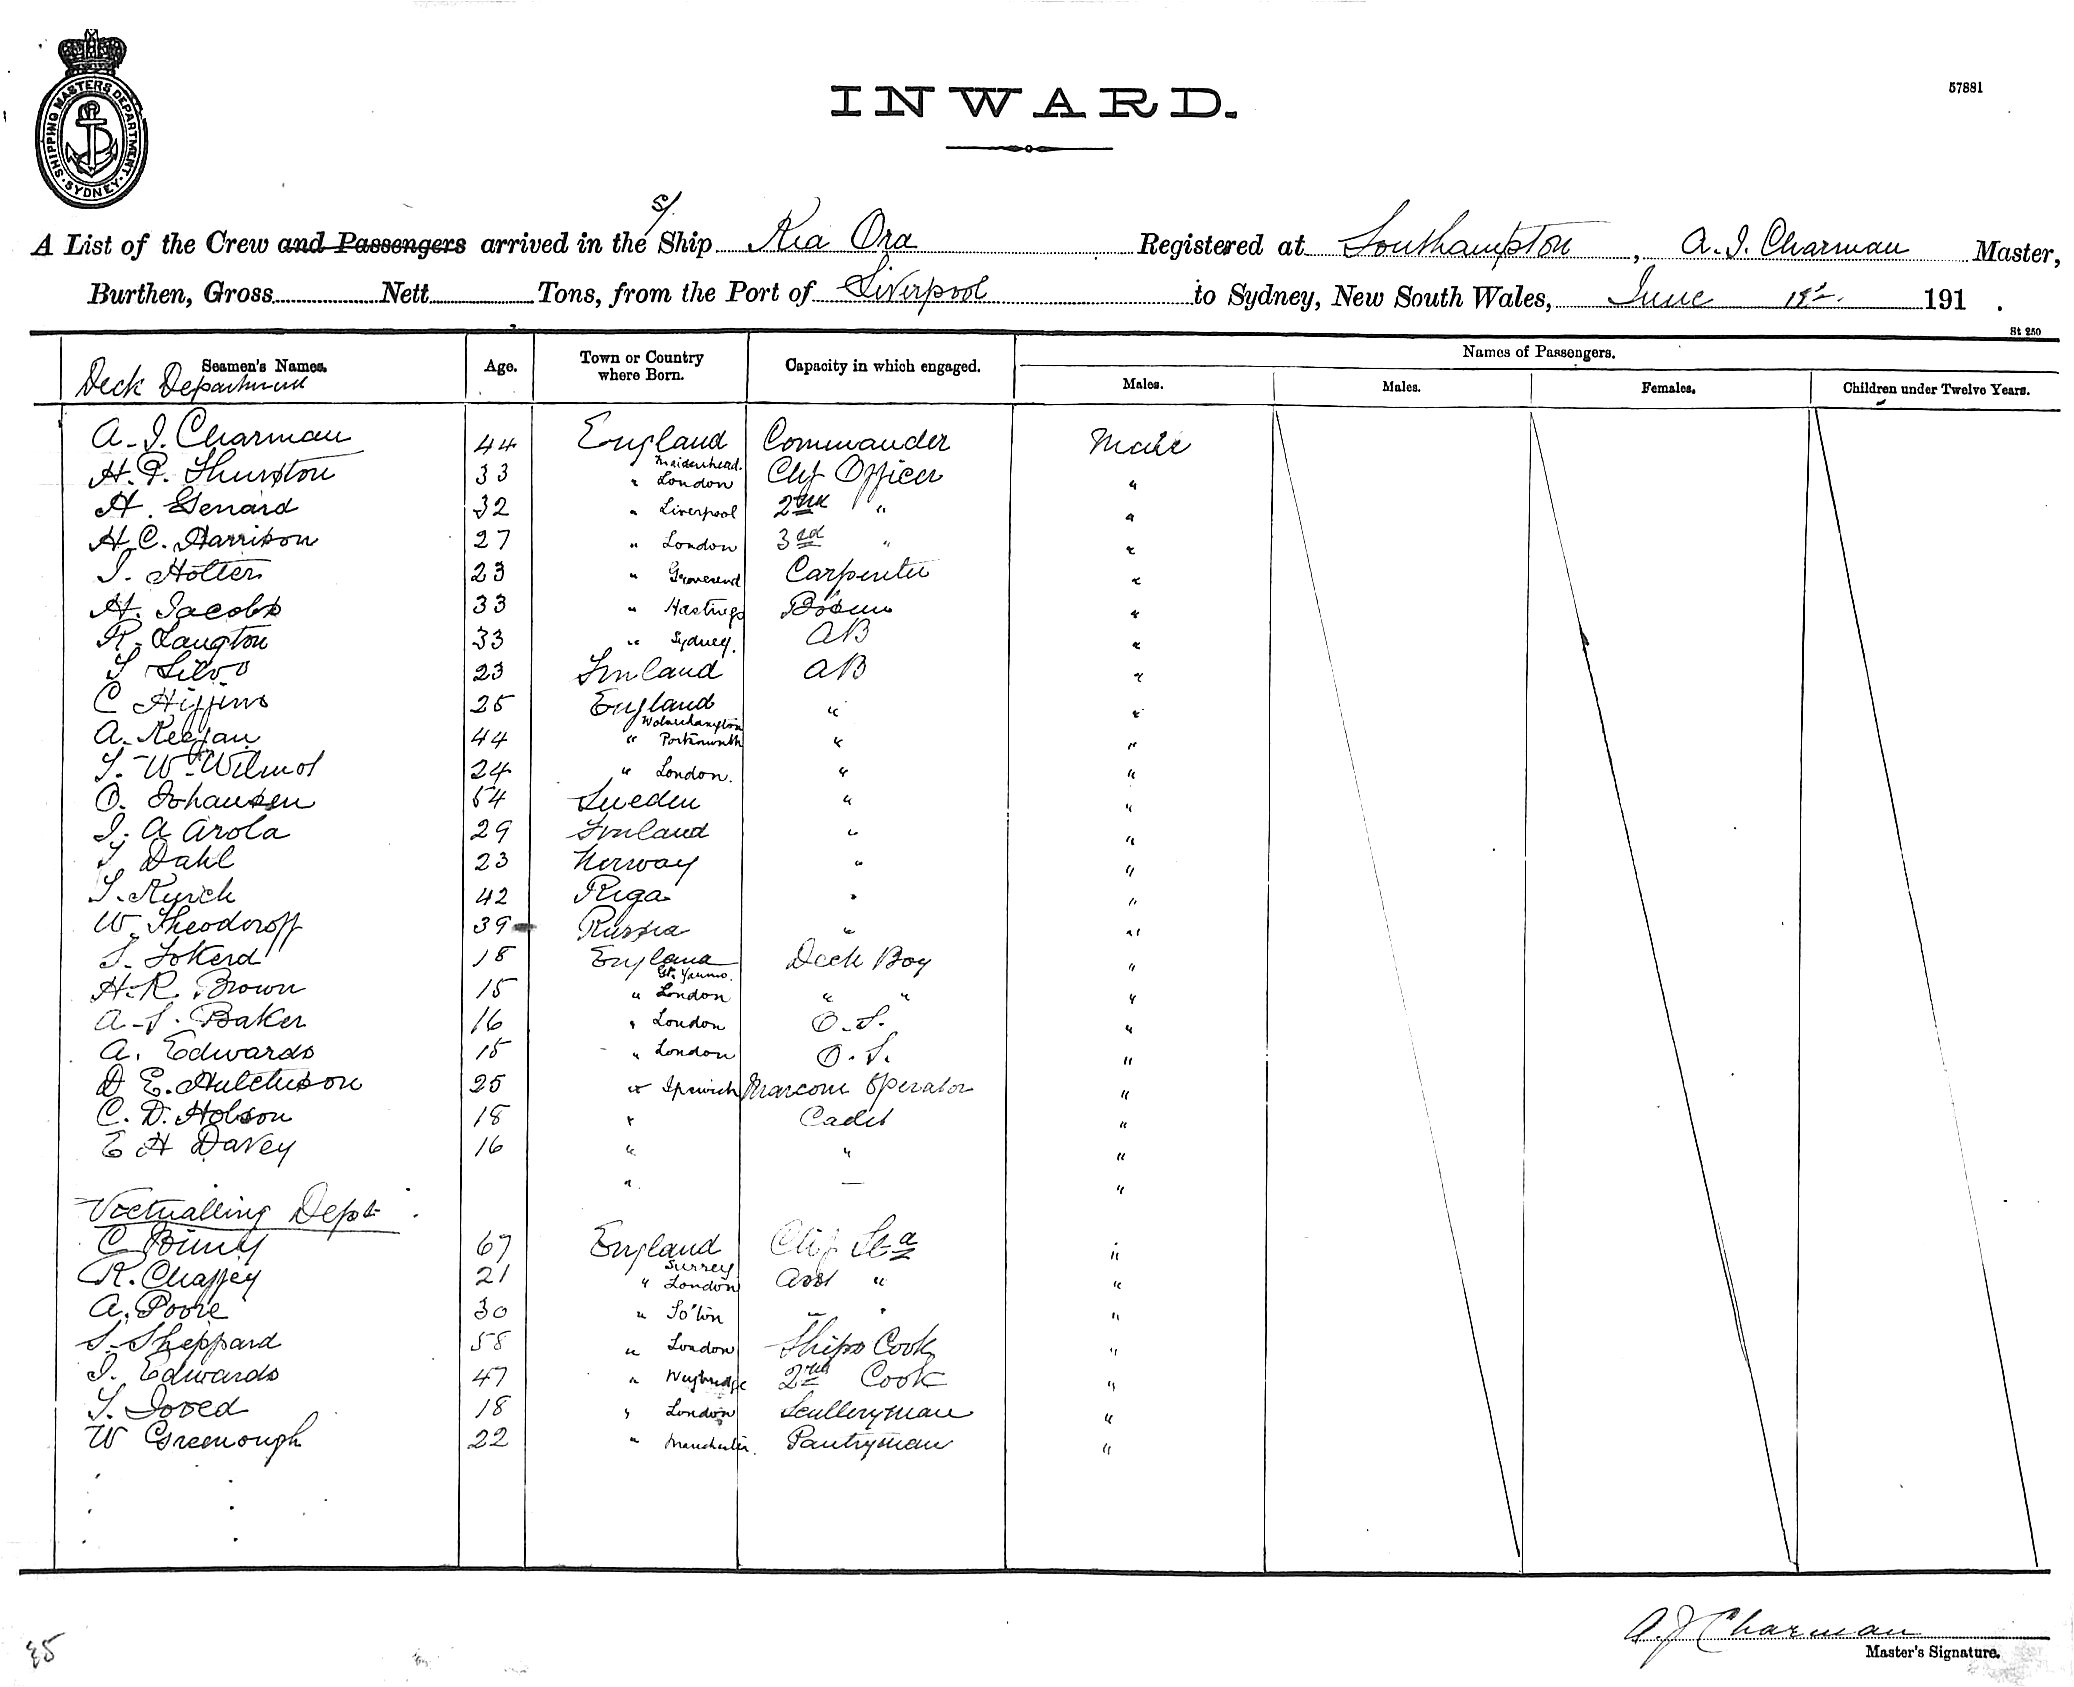 SHIPPING MASTERS DEPARTMENT. SYDNEY.
INWARD.
57881
A List of the Crew and Passengers arrived in the S/ Ship Kia Ora Registered at Southampton, A. J. Charman Master,
Burthen, Gross Nett Tons, from the Port of Liverpool to Sydney, New South Wales, June 191 .
St 250
Seamen's Names. Age. Town or Country where Born. Capacity in which engaged. Names of Passengers.
Deck Department Males. Males. Females. Children under Twelve Years.
A. J. Charman 44 England Maidenhead. Commander Male
H. P. Thurston 33 " London Chf Officer "
H. Genard 32 " Liverpool 2nd " "
H. C. Harrison 27 " London 3rd " "
J. Holter 23 " Gravesend Carpenter "
H. Jacobs 33 " Hastings Bosun "
R. Langton 33 " Sydney. AB "
S Silvo 23 Finland AB "
C Higgins 25 England Wolverhampton " "
A. Keegan 44 " Portsmouth " "
T. W. Wilmot 24 " London. " "
O. Johansen 54 Sweden " "
J. A Arola 29 Finland " "
T Dahl 23 Norway " "
42 Riga " "
W. Theodoroff 39 Russia " "
18 England Gt. Yarmo. Deck Boy "
H. R. Brown 15 " London " " "
A. S. Baker 16 " London O. S. "
A. Edwards 15 " London O. S. "
D E. Hutchison 25 " Ipswich Marconi Operator "
C. D. Hobson 18 " Cadet "
E H Davey 16 " " "
" — "
Victualling Dept.
C Binny 67 England Surrey Chf Std "
R. Chaffey 21 " London Asst " "
A. Poore 30 " So'ton " " "
S. Sheppard 58 " London Ships Cook "
J. Edwards 47 " Weybridge 2nd Cook "
18 " London Sculleryman "
W Greenough 22 " Manchester. Pantryman "
A. J Charman
Master's Signature.